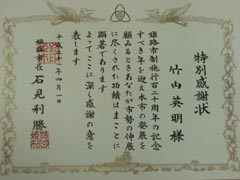 特別感謝状
竹内英明様
姫路市制施行百二十周年の記念
すべき年を迎え本市の発展を
顧みるときあなたが市勢の伸展
に尽くされた功績はまことに
顕著であります
よってここに深く感謝の意を
表します
平成二十一年四月一日
姫路市長 石見利勝